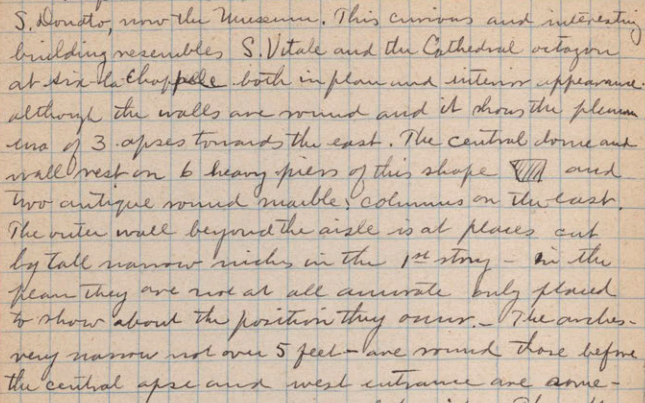 S. Donato, now the Museum. This curious and interesting
building resembles S. Vitale and the Cathedral octagon
at Aix-la-Chappele both in plan and interior appearance.
although the walls are round and it shows the phenom
ena of 3 apses towards the east. The central dome and
wall rest on 6 heavy piers of this shape and
two antique round marble columns on the east.
The outer wall beyond the aisle is at places cut
by tall narrow niches in the 1st story - in the
plan they are not at all accurate only placed
to show about the position they occur. - The arches -
very narrow not over 5 feet - are round those before
the central apse and west entrance are some-